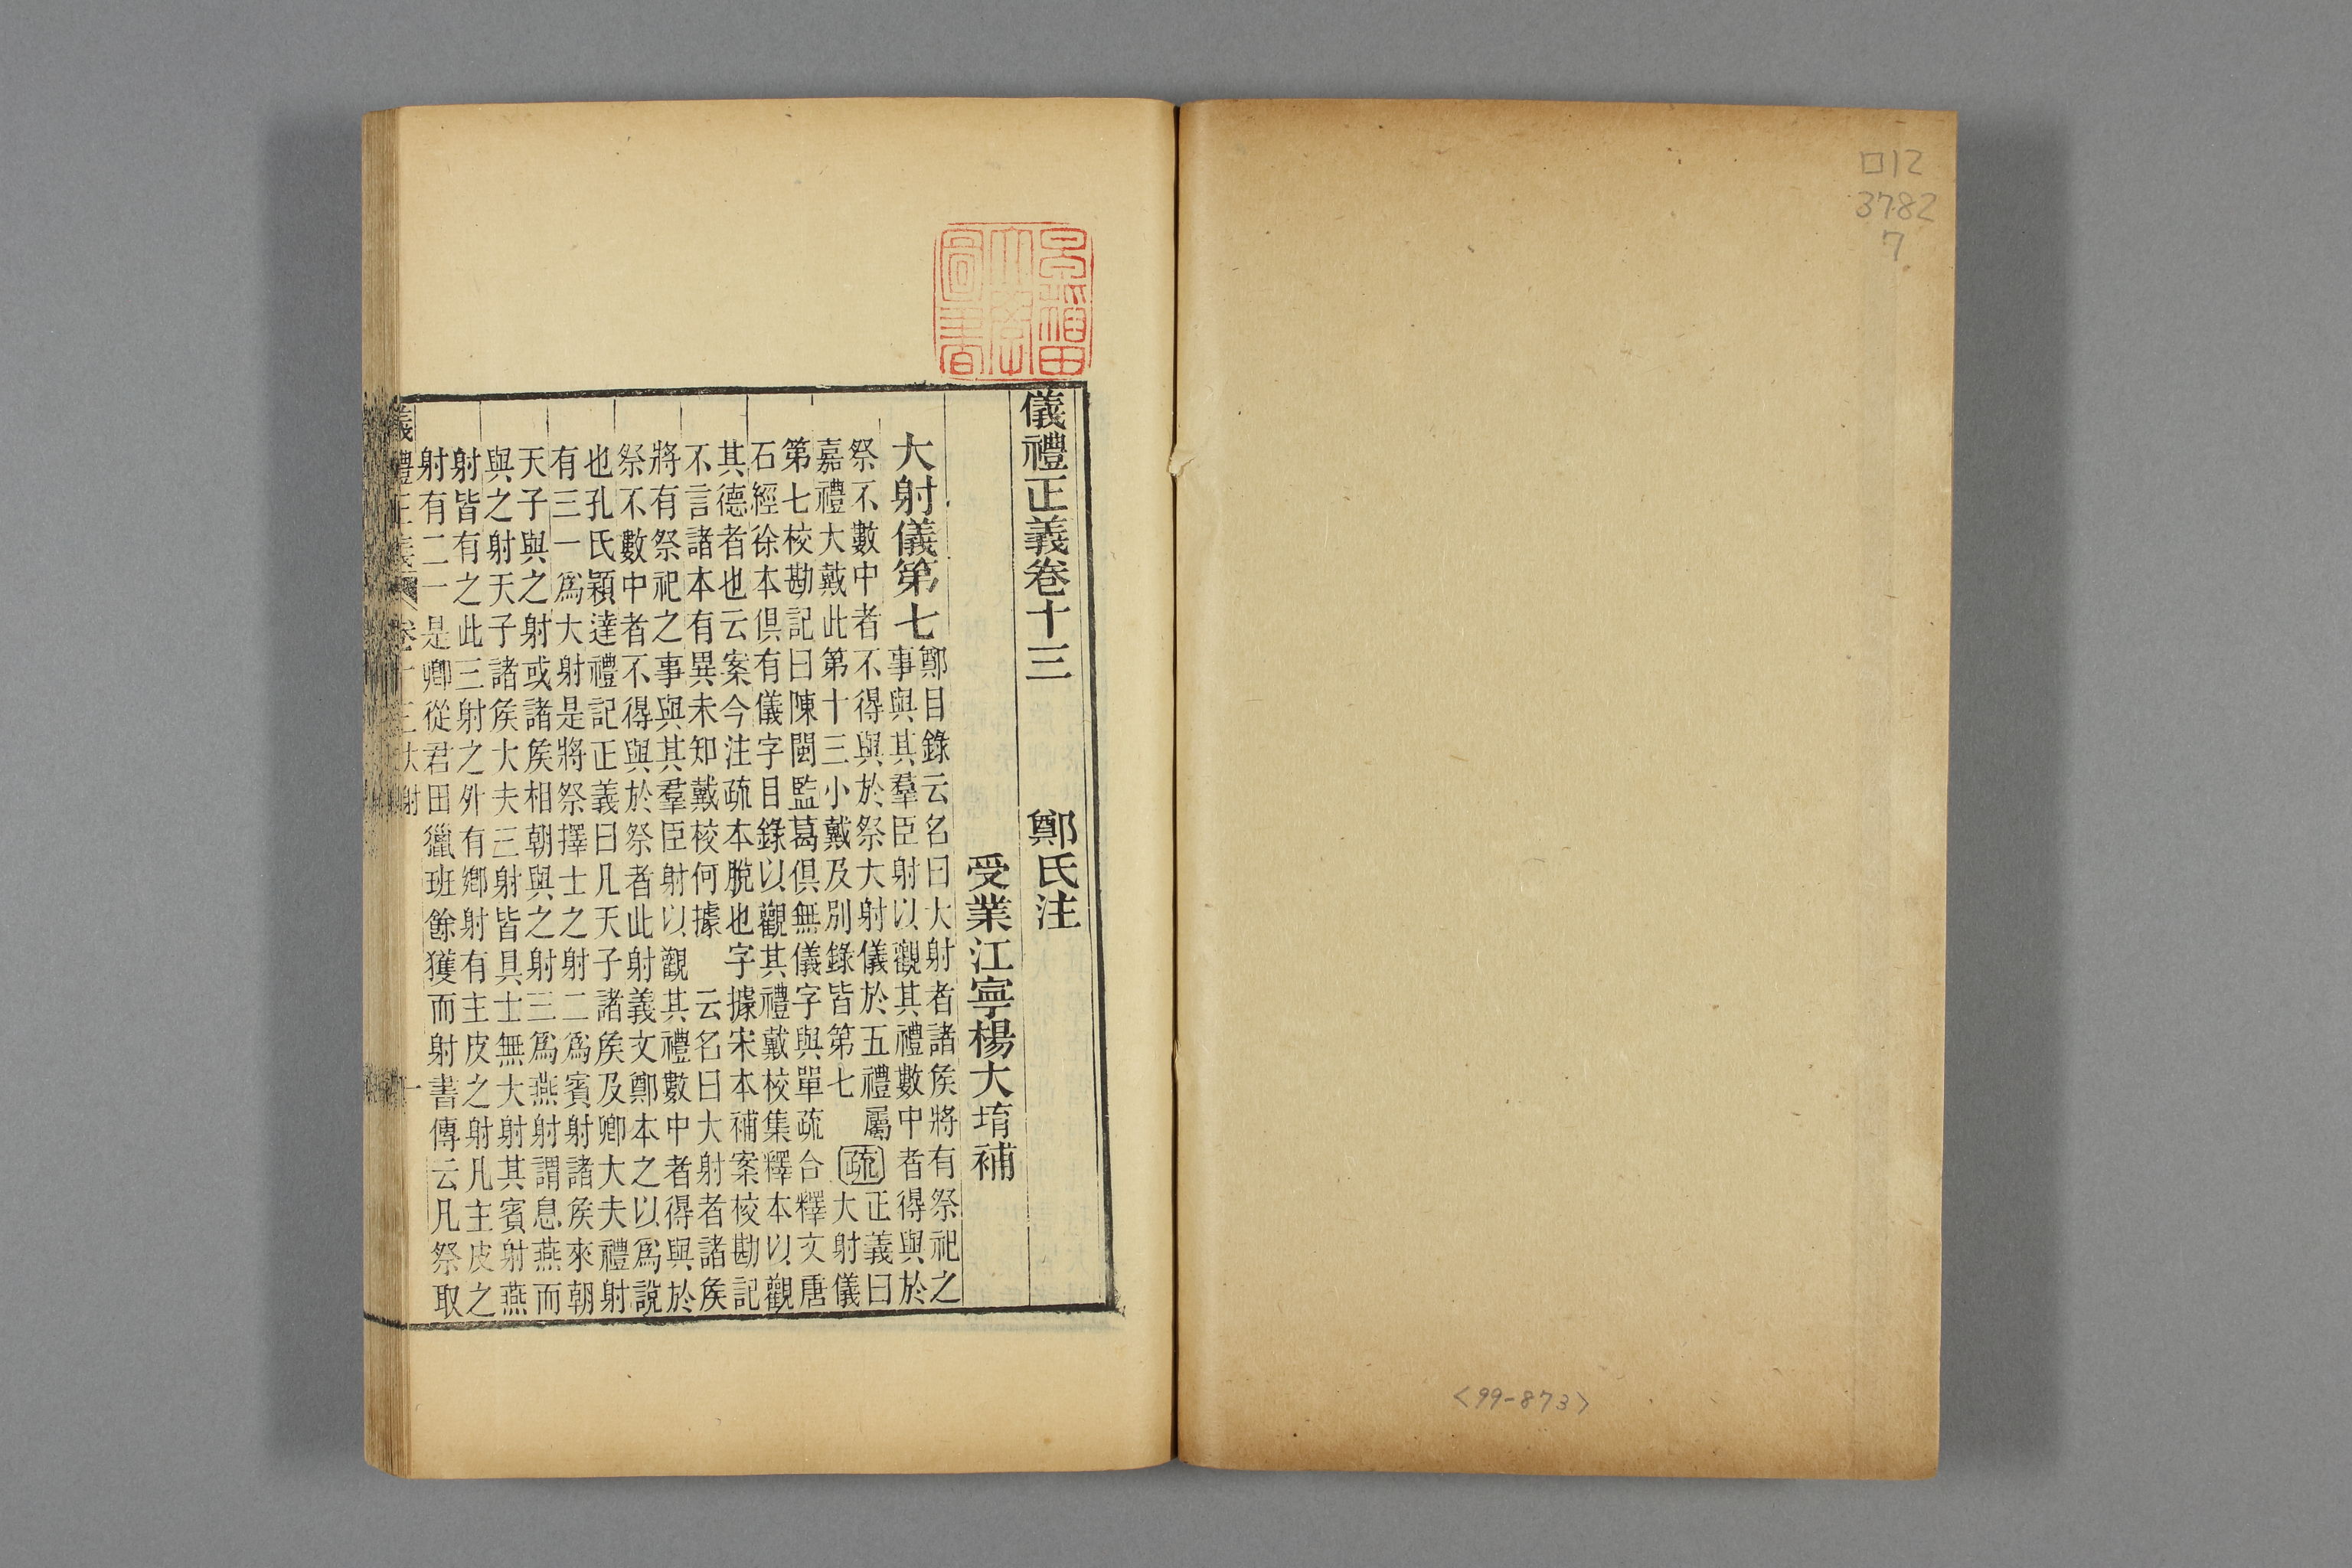 口12
3782
7
<99-873>
早稻田
大學
圖書
儀禮正義卷十三　鄭氏注
受業江寧楊大堉補
大射儀第七鄭目錄云名曰大射者諸矦將有祭祀之
事與其羣臣射以觀其禮數中者得與於
祭不數中者不得與於祭大射儀於五禮屬　正義曰
嘉禮大戴此第十三小戴及別錄皆第七　疏　大射儀
第七校勘記曰陳閩監葛俱無儀字與單疏合釋文唐
石經徐本俱有儀字目錄以觀其禮戴校集釋本以觀
其德者也云案今注疏本脫也字據宋本補案校勘記
不言諸本有異未知戴校何據　云名曰大射者諸矦
將有祭祀之事與其羣臣射以觀其禮數中者得與於
祭不數中者不得與於祭者此射義文鄭本之以爲說
也孔氏穎達禮記正義曰凡天子諸矦及卿大夫禮射
有三一爲大射是將祭擇士之射二爲賓射諸矦來朝
天子與之射或諸矦相朝與之射三爲燕射謂息燕而
與之射天子諸矦大夫三射皆具士無大射其賓射燕
射皆有之此三射之外有鄉射有主皮之射凡主皮之
射有二一是卿從君田獵班餘獲而射書傳云凡祭取
儀禮正義　卷十三大射　一